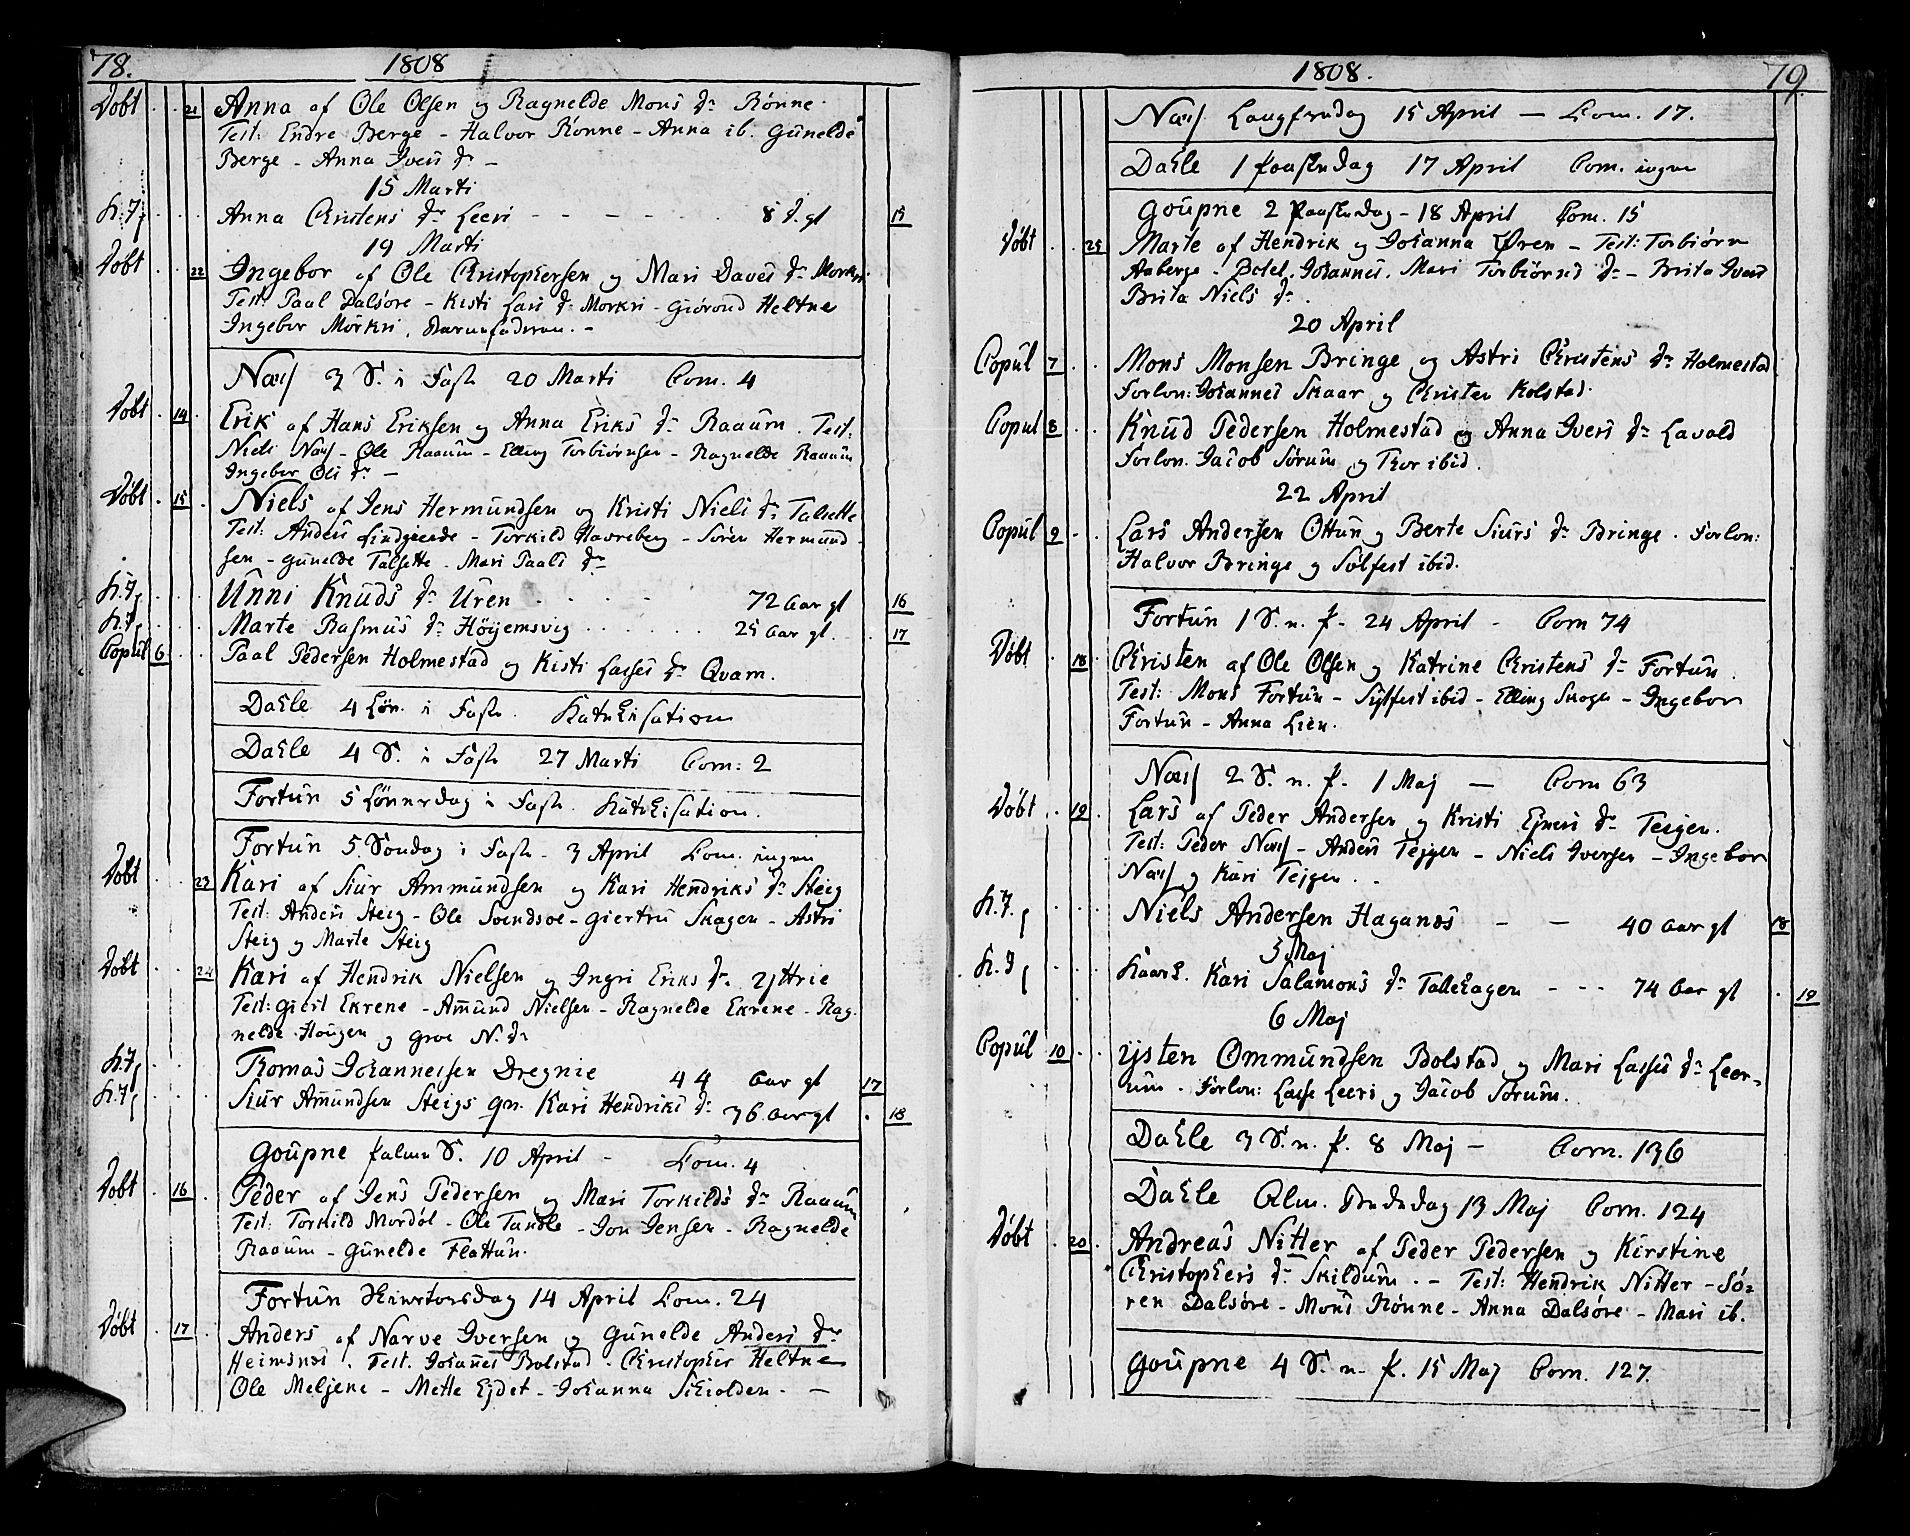 78. 1808
Døbt 21 Anna af Ole Olsen og Ragnelde Mons dr Rønne.
Test: Endre Berge - Halvor Rønne - Anna ib. Gunelde
Berge - Anna Ivers dr -
15 Marti
Anna Christens dr Leeri - - - 8 d. gl 15
19 Marti
Døbt 22 Ingebor af Ole Christophersen og Mari Daves dr Morkri
Test: Paal Dalsøre - Kisti Lars dr Morkri - Giørond Heltne
Ingebor Morkri.
Næss 3 S. i Faste 20 Marti Com. 4
Døbt 14 Erik af Hans Eriksen og Anna Eriks dr Raaum. Test:
Niels Næss - Ole Raaum - Elling Torbiørnsen - Ragnelde Raaum
Ingebor Ols dr -
Døbt 15 Niels af Jens Hermundsen og Kristi Niels dr Talsette
Test: Anders Lindgierde - Torkild Havreberg - Søren Hermund-
sen - Gunelde Talsette - Mari Paals dr
Unni Knuds dr Uren 72 Aar gl 16
Marte Rasmus dr Høyemsvig 25 Aar gl. 17
Copul 6 Paal Pedersen Holmestad og Kisti Lasses dr Qvam.
Dahle 4 Løv. i Faste. Katekisation
Dahle 4 S. i Faste 27 Marti Com: 2
Fortun 5 Lønverdag i Faste. Katekisation.
Fortun 5 Søndag i Faste - 3 April Com. ingen
Døbt 23 Kari af Siur Ammundsen og Kari Hendriks dr Steig
Test: Anders Steig - Ole Svendsøe - Giertru Skagen - Astri
Steig og Marte Steig
Døbt 24 Kari af Hendrik Nielsen og Ingri Eriks dr Yttrie
Test: Giert Ekrene - Amund Nielsen - Ragnelde Ekrene - Rag-
nelde Hougen og Groe N. dr
Thomas Johannessen Dregnie 44 Aar gl 17
Siur Amundsen Steigs qv. Kari Hendriks dr 36 Aar gl 18
Goupne Palme S. 10 April - Com. 4
Døbt 16 Peder af Jens Pedersen og Mari Torkilds dr Raaum
Test: Torkild Mordøl - Ole Tandle - Jon Jensen - Ragnelde
Raaum - Gunelde Flattun.
Fortun Skiertorsdag 14 April Com. 24
Døbt 17 Anders af Narve Iversen og Gunelde Anders dr
Heimsnes. Test. Johannes Bolstad - Christopher Heltne
Ole Meljene - Mette Ejdet - Johanna Skiolden. -
1808. 79.
Næss Langfredag 15 April - Com. 17.
Dahle 1 Paaskedag 17 April Com. ingen
Goupne 2 Paaskedag - 18 April Com. 15
Døbt 25 Marte af Hendrik og Johanna Øren - Test: Torbiørn
Aaberge - Botel Johannes. Mari Torbiørns dr - Brita Ivers
Brita Niels dr.
20 April
Copul 7 Mons Monsen Bringe og Astri Christens dr Holmestad
Forlov: Johannes Skaar og Christen Kolstad.
Copul 8 Knud Pedersen Holmestad og Anna Ivers dr Lavold
Forlov. Jacob Sørum og Thor ibid.
22 April
Copul 9 Lars Andersen Ottun og Berte Siurs dr Bringe. Forlov:
Halvor Bringe og Sølfest ibid.
Fortun 1 S. n. P. 24 April - Com 74
Døbt 18 Christen af Ole Olsen og Katrine Christens dr Fortun.
Test: Mons Fortun - Sylfest ibid - Elling Skogen - Ingebor
Fortun - Anna Lien.
Næss 2 S. n. P. 1 Maj - Com 63
Døbt 19 Lars af Peder Andersen og Kristi Ejners dr Teigen.
Test: Peder Næss - Anders Tejgen - Niels Iversen - Ingebor
Næss og Kari Tejgen.
Niels Andersen Haganæs - - 40 Aar gl 18
5 Maj
Kari Salamons dr Talehagen - - - 74 Aar gl 19
6 Maj
Copul 10 Ysten Ommundsen Bolstad og Mari Lasses dr Leer-
um. Forlov: Lasse Leeri og Jacob Sørum.
Dahle 3 S. n. P. 8 Maj - Com. 136
Dahle Alm. Bededag 13 Maj Com. 124
Døbt 20 Andreas Nitter af Peder Pedersen og Kirstine
Christophers dr Skildum. - Test: Hendrik Nitter - Sø-
ren Dalsøre - Mons Rønne - Anna Dalsøre - Mari ib.
Goupne 4 S. n. P. 15 Maj Com. 127.